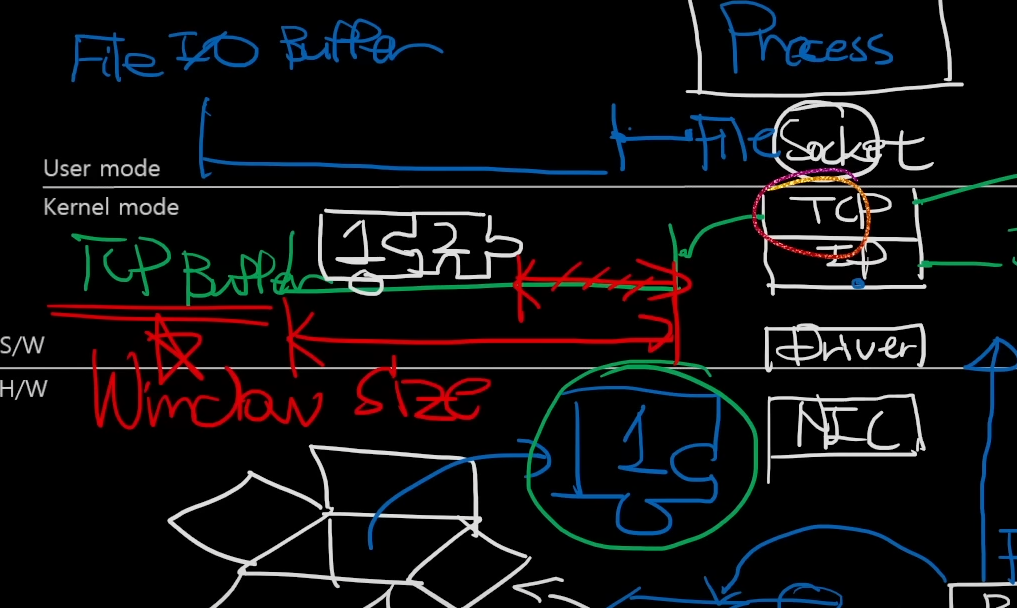 File I/O Buffer
Process
File
Socket
User mode
Kernel mode
TCP
IP
1 2
TCP Buffer
S/W
Driver
H/W
Window size
1
NIC